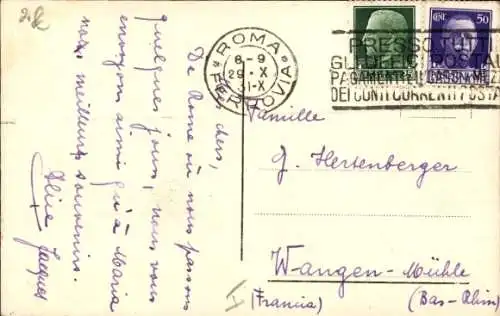 Mes chers,
De Rome où nous passons
quelques jours, nous vous
envoyons ainsi qu'à Maria
nos meilleurs souvenirs.
Alice Jacques
ROMA
8-9
29·X
31-X
FERROVIA
CENT. 50
PRESSO TUTTI
GLI UFFICI POSTALI
PAGAMENTI
DEI CONTI CORRENTI POSTA
Famille
J. Hertenberger
Wangen-Mühle
(Francia) (Bas-Rhin)